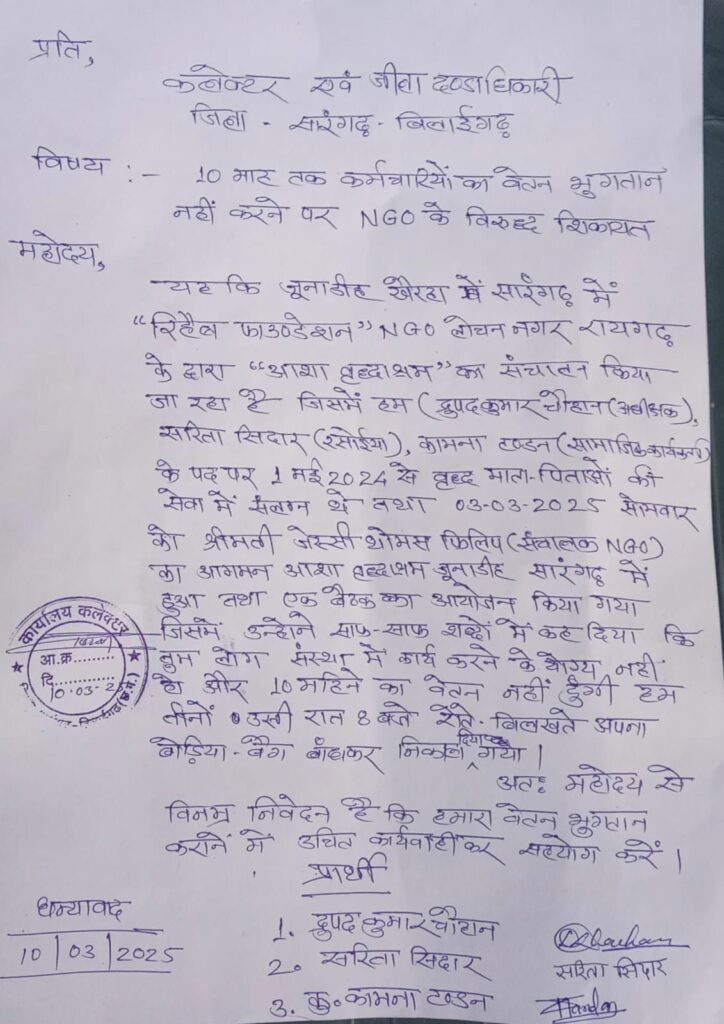 प्रति,
कलेक्टर एवं जीला दण्डाधिकारी
जिला - सारंगढ़ - बिलाईगढ़
विषय :- 10 माह तक कर्मचारियों का वेतन भुगतान
नहीं करने पर NGO के विरुद्ध शिकायत
महोदय,
यह कि जूनाडीह खैरहा में सारंगढ़ में
“रिहैब फाउण्डेशन” NGO लोचन नगर रायगढ़
के द्वारा “आशा वृद्धाश्रम” का संचालन किया
जा रहा है जिसमें हम (द्रुपद कुमार चौहान (अधीक्षक),
सरिता सिदार (रसोईया), कामना टण्डन (सामाजिक कार्यकर्ता)
के पद पर 1 मई 2024 से वृद्ध माता-पिताओं की
सेवा में संलग्न थे तथा 03-03-2025 सोमवार
को श्रीमती जेस्सी थोमस फिलिप (संचालक NGO)
का आगमन आशा वृद्धाश्रम जूनाडीह सारंगढ़ में
हुआ तथा एक बैठक का आयोजन किया गया
जिसमें उन्होंने साफ-साफ शब्दों में कह दिया कि
तुम लोग संस्था में कार्य करने के योग्य नहीं
हो और 10 महिने का वेतन नहीं दुँगी हम
तीनों उसी रात 8 बजे रोते-बिलखते अपना
बोड़िया-बैग बांधकर निकाल दिया गया।
अतः महोदय से
विनम्र निवेदन है कि हमारा वेतन भुगतान
कराने में उचित कार्यवाही कर सहयोग करें।
प्रार्थी
धन्यवाद
10/03/2025
1. द्रुपद कुमार चौहान
2. सरिता सिदार
सरिता सिदार
3. कु. कामना टण्डन
कार्यालय कलेक्टर
आ.क्र.
दि.
10-03-2